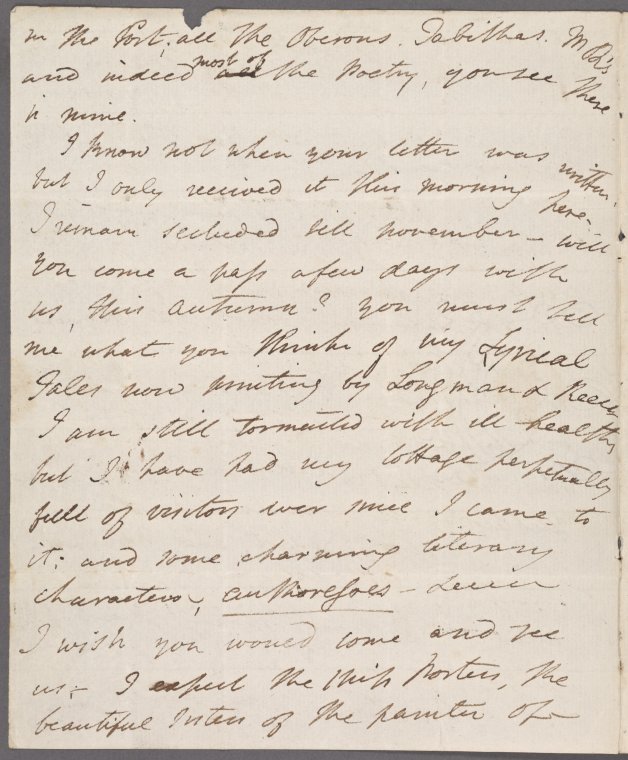 in the Post; all the Oberons. Tabithas. M Rs
and indeed most of all the Poetry, you see there
is mine.
I know not when your letter was written,
but I only received it this morning here.
I remain secluded till november – will
you come & pass a few days with
us, this autumn? you must tell
me what you think of my Lyrical
Tales now printing by Longman & Rees
I am still tormented with ill health,
but I have had my Cottage perpetually
full of visitors ever since I came to
it; and some charming literary
characters, authoresses –
I wish you would come and see
us – I expect the Miss Porters, the
beautiful sisters of the painter of